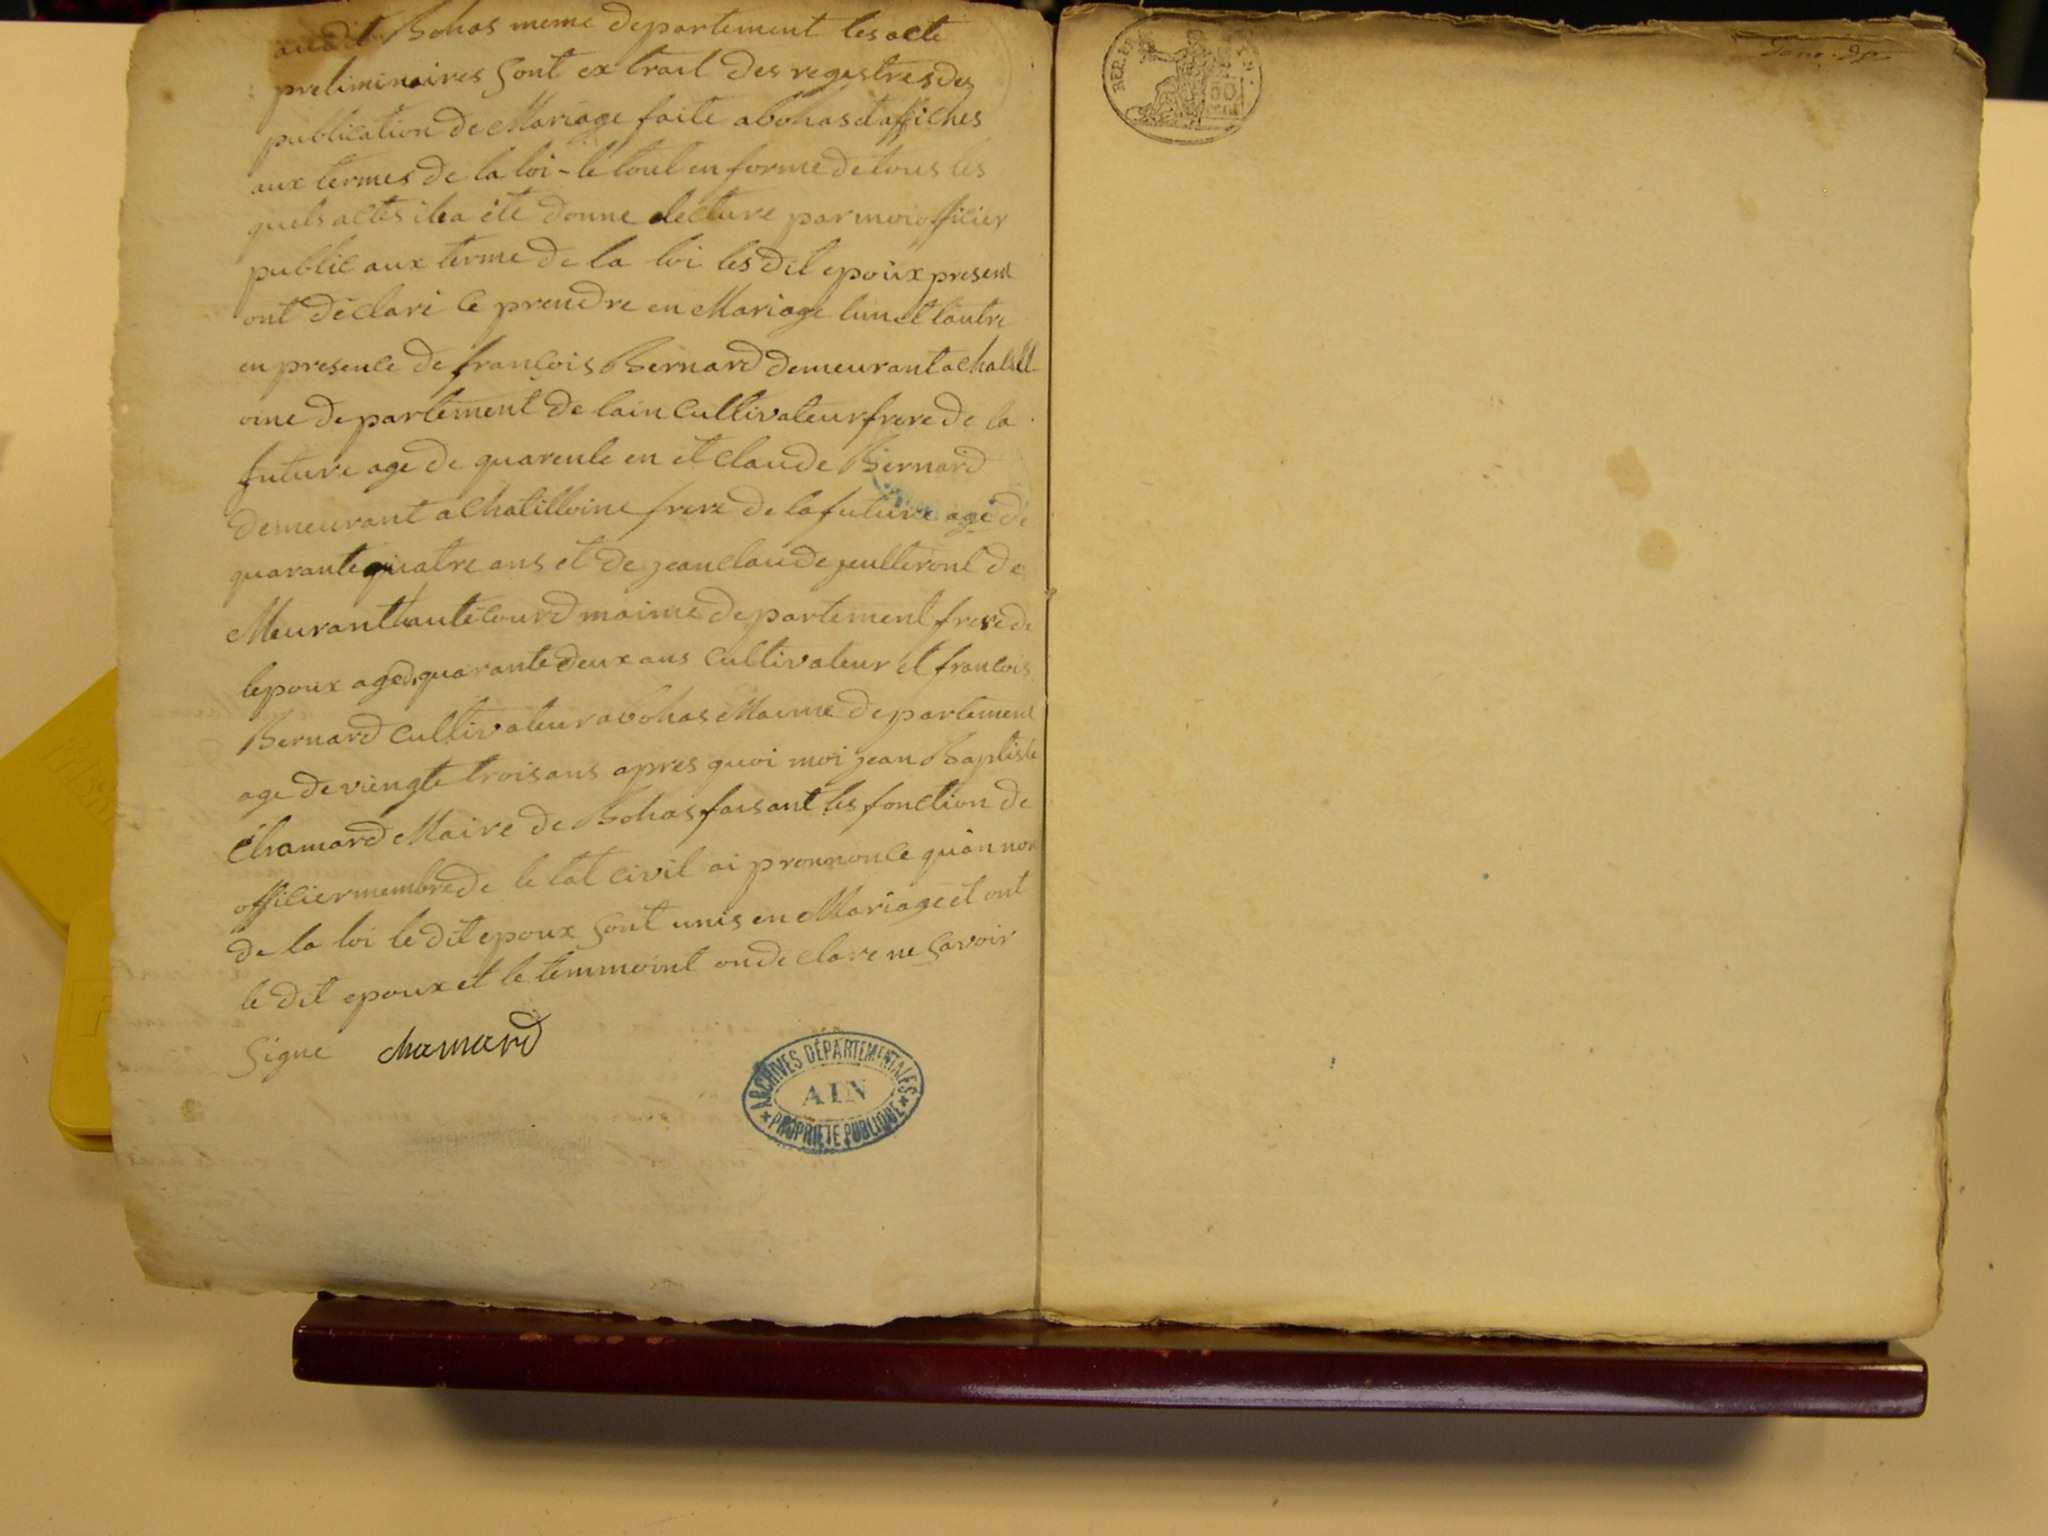 audit Bohas meme departement les acte
preliminaires sont extrait des registres des
publication de Mariage faite a bohas et affiches
aux termes de la loi - le tout en forme de tous les
quels actes il a été donne lecture par moi officier
public aux terme de la loi les dit epoux present
ont déclaré ce prendre en Mariage lun et lautre
en presence de françois Bernard demeurant a chatill
oine departement de lain Cultivateur frere de la
future age de quarente en et claude Bernard
demeurant a Chatilloine frere de la future age de
quarante quatre ans et de jean claude de
Meurant hautecourd maime departement frere de
lepoux age de quarante deux ans Cultivateur et francois
Bernard Cultivateur a bohas Maime departement
age de viengte trois ans apres quoi moi jean Baptiste
Chamard Maire de Bohas faisant les fonction de
officier membre de le tat civil ai pronnonce quan non
de la loi le dit epoux sont unis en Mariage et ont
le dit epoux et le temmoint on de clare ne savoir
Signe chamard
ARCHIVES DÉPARTEMENTALES
AIN
PROPRIÉTÉ PUBLIQUE
REP.
50